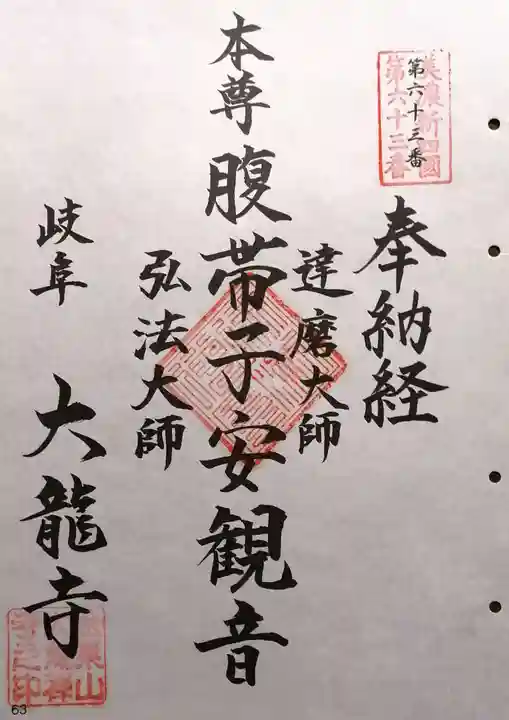 美濃新四國
第六十三番
第六十三番
奉納経
達磨大師
本尊 腹帯子安観音
弘法大師
岐阜 大龍寺
63